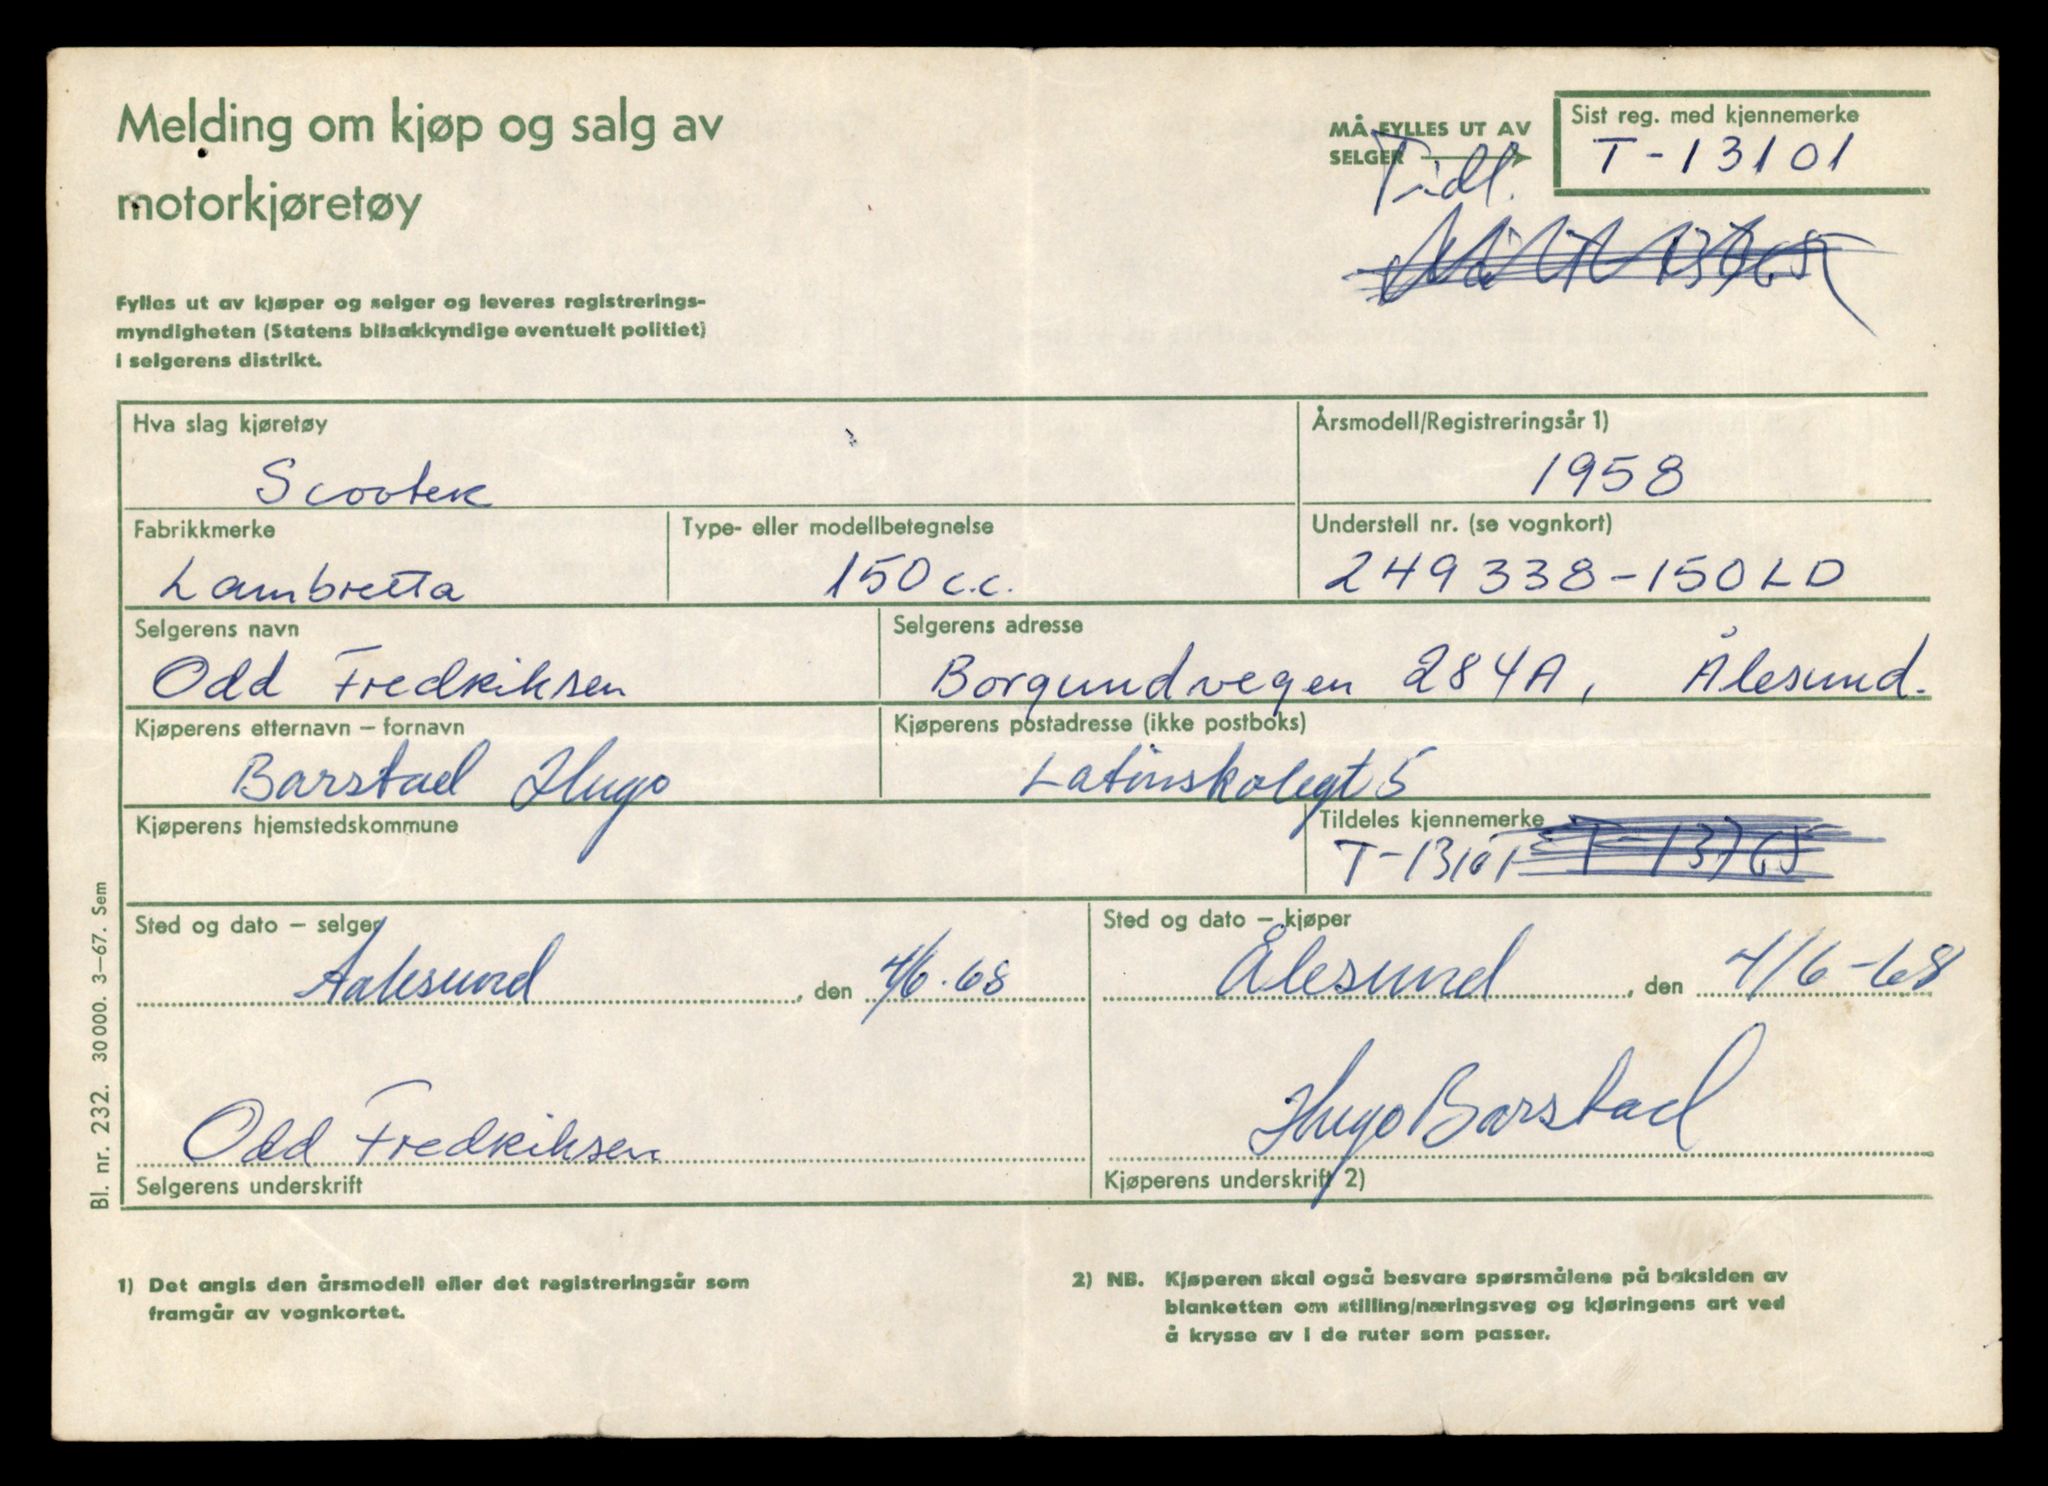 Melding om kjøp og salg av
motorkjøretøy
MÅ FYLLES UT AV
SELGER
Sist reg. med kjennemerke
T-13101
Tidl.
Fylles ut av kjøper og selger og leveres registrerings-
myndigheten (Statens bilsakkyndige eventuelt politiet)
i selgerens distrikt.
Hva slag kjøretøy
Scooter
Årsmodell/Registreringsår 1)
1958
Fabrikkmerke
Lambretta
Type- eller modellbetegnelse
150 c.c.
Understell nr. (se vognkort)
249338-150LD
Selgerens navn
Odd Fredriksen
Selgerens adresse
Borgundvegen 284A, Ålesund.
Kjøperens etternavn – fornavn
Barstad Hugo
Kjøperens postadresse (ikke postboks)
Latinskolegt 5
Kjøperens hjemstedskommune
Tildeles kjennemerke
T-13101 T-13765
Sted og dato – selger
Aalesund, den 4/6-68
Sted og dato – kjøper
Ålesund, den 4/6-68
Odd Fredriksen
Selgerens underskrift
Hugo Barstad
Kjøperens underskrift 2)
Bl. nr. 232. 30000. 3–67. Sem
1) Det angis den årsmodell eller det registreringsår som
framgår av vognkortet.
2) NB. Kjøperen skal også besvare spørsmålene på baksiden av
blanketten om stilling/næringsveg og kjøringens art ved
å krysse av i de ruter som passer.